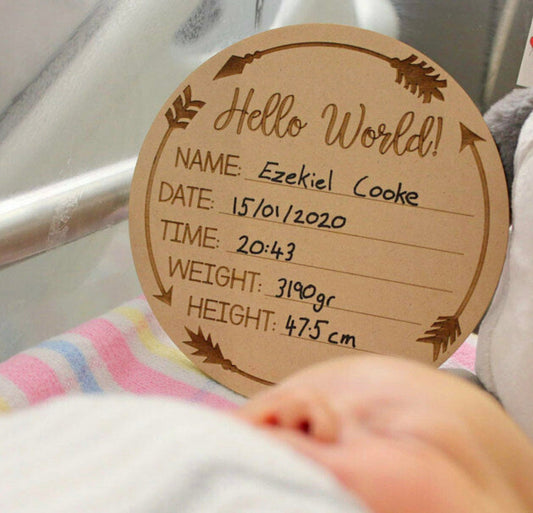 Hello World!
NAME: Ezekiel Cooke
DATE: 15/01/2020
TIME: 20:43
WEIGHT: 3190gr
HEIGHT: 47.5cm